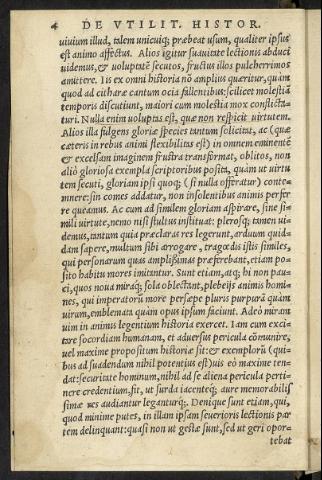 4 DE VTILIT. HISTOR.
uiuium illud, talem unicuiq; præbeat usum, qualiter ipsus
est animo affectus. Alios igitur suauitate lectionis abduci
uidemus, & uoluptatẽ secutos, fructus illos pulcherrimos
amittere. Iis ex omni historia nõ amplius quæritur, quàm
quod ad citharæ cantum ocia fallentibus: scilicet molestiã
temporis discutiunt, maiori cum molestia mox conflicta-
turi. Nulla enim uoluptas est, quæ non respicit uirtutem.
Alios illa fulgens gloriæ species tantum solicitat, ac (quæ
cæteris in rebus animi flexibilitas est) in omnem eminentẽ
& excelsam imaginem frustra transformat, oblitos, non
aliò gloriosa exempla scriptoribus posita, quàm ut uirtu
tem secuti, gloriam ipsi quoq; (si nulla offeratur) conte-
mnere: sin comes addatur, non insolentibus animis perfer
re queamus. Ac cum ad similem gloriam aspirare, sine si-
mili uirtute, nemo nisi stultus instituat: plerosq; tamen ui-
demus, tantum quia præclaras res legerunt, arduum quid-
dam sapere, multum sibi arrogare, tragœdis istis similes,
qui personarum quas amplißimas præferebant, etiam po-
sito habitu mores imitantur. Sunt etiam, atq; hi non pau-
ci, quos noua miraq; sola oblectant, plebeijs animis homi-
nes, qui imperatorũ more persæpe pluris purpurã quàm
uirum, emblemata quàm opus ipsum faciunt. Adeò miram
uim in animis legentium historia exercet. Iam cum exci-
tare socordiam humanam, et aduersus pericula cõmunire,
uel maxime propositum historiæ sit: & exemplorũ (qui-
bus ad suadendum nihil potentius est) uis eò maxime ten-
dat: securitate hominum, nihil ad se aliena pericula perti-
nere credentium, fit, ut surda iacenteq; aure memorabilis
simæ res audiantur leganturq;. Denique sunt etiam, qui,
quod minime putes, in illam ipsam seuerioris lectionis par
tem delinquant: quasi non ut gestæ sunt, sed ut geri opor-
tebat